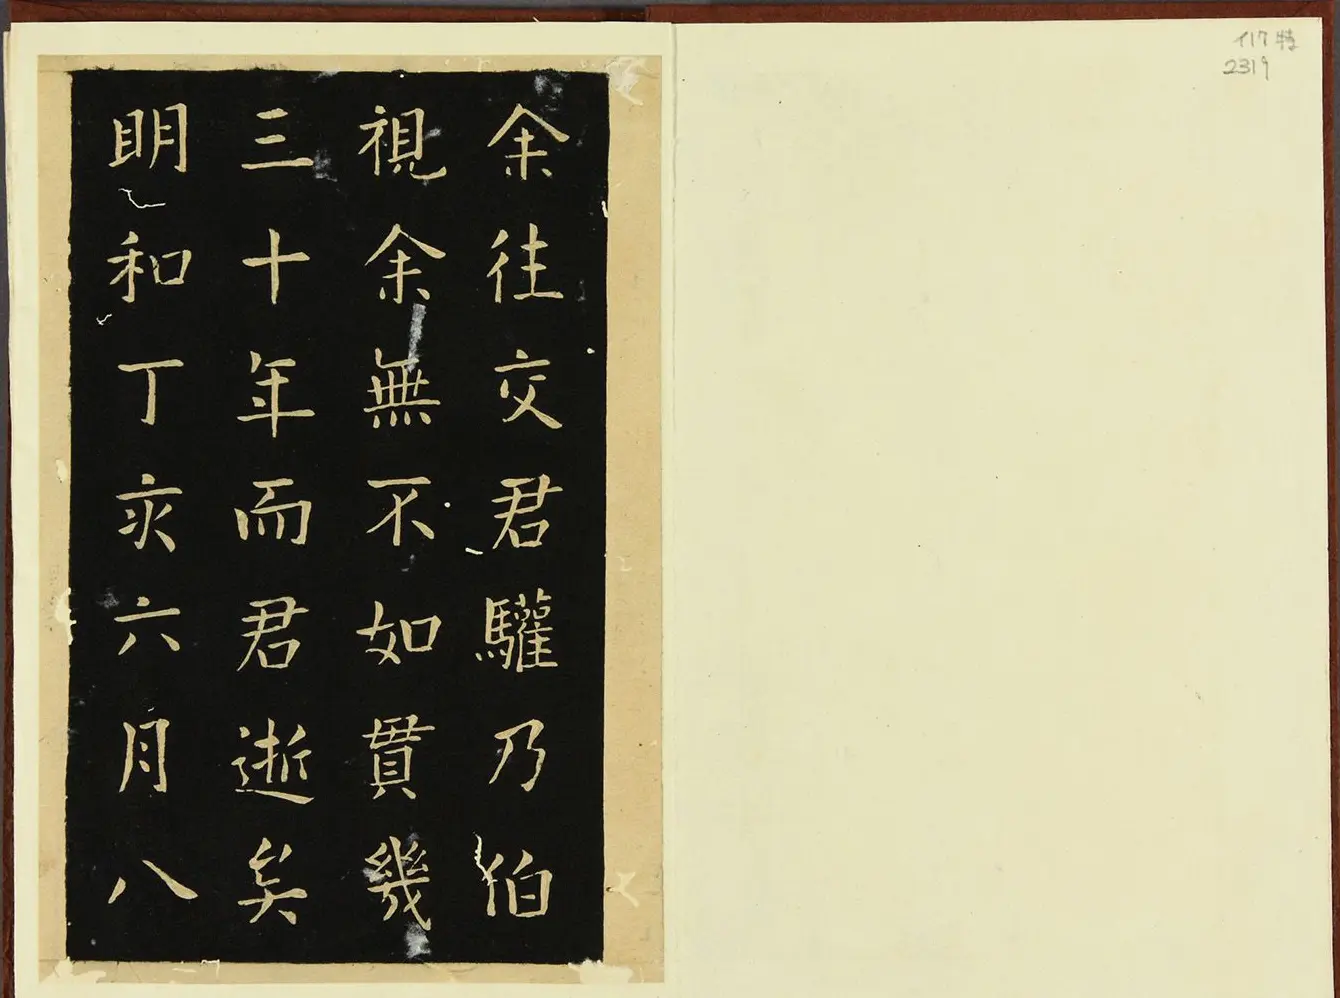 余往交君驩乃伯
視余無不如貫幾
三十年而君逝矣
明和丁亥六月八
イ17 特
2319